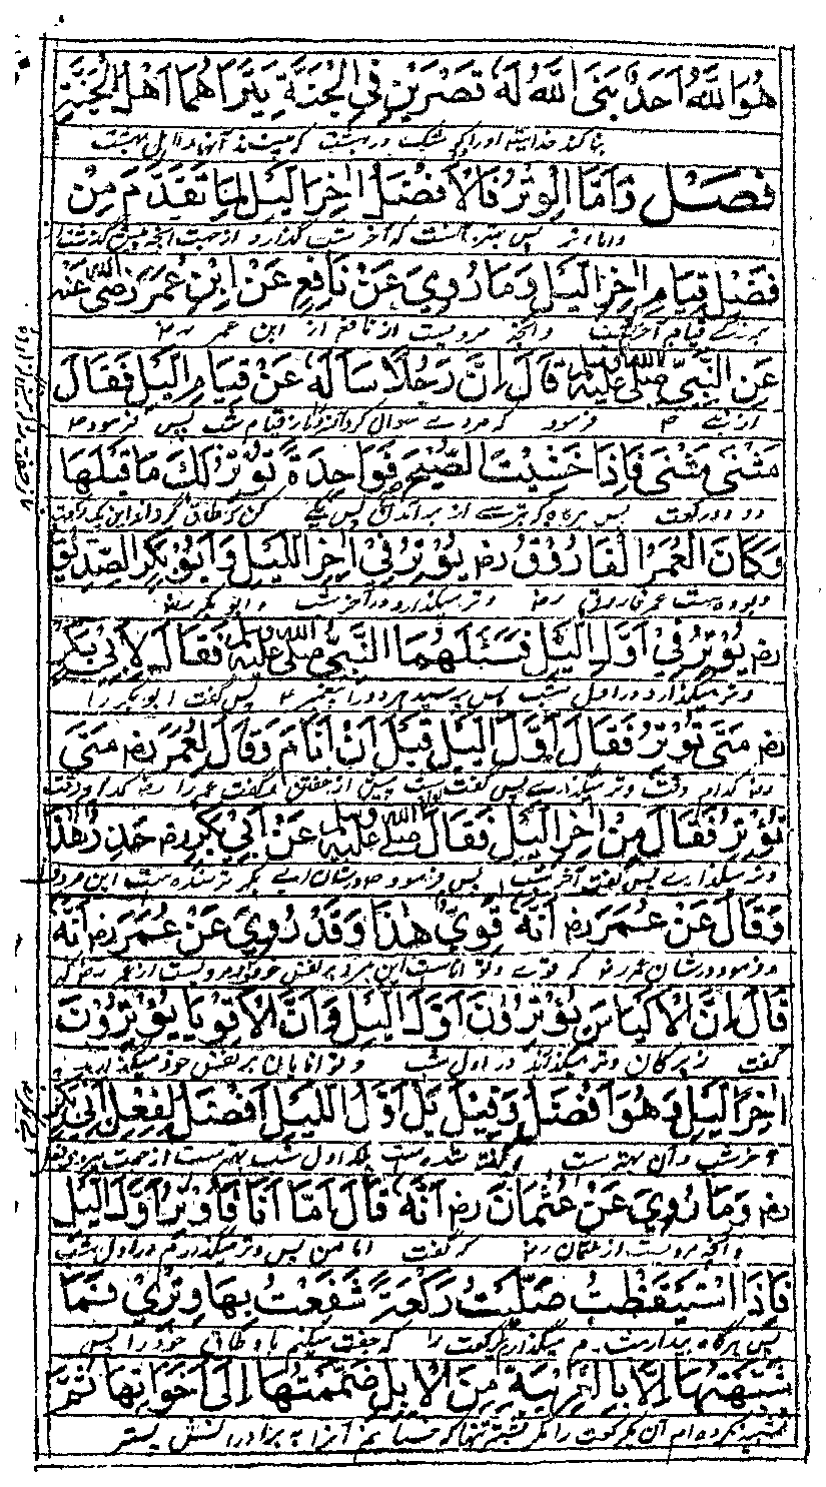 هُوَ اللَّهُ أَحَدٌ بَنَى اللَّهُ لَهُ قَصْرَيْنِ فِي الْجَنَّةِ يَتَرَاهُمَا أَهْلُ الْجَنَّةِ
بنا کند خدایتعالی او را کوشک در بهشت که می‌بینند آنها را اهل بهشت
فَصْلٌ وَأَمَّا الْوِتْرُ فَالْأَفْضَلُ اٰخِرَ الَّيْلِ لِمَا تَقَدَّمَ مِنْ
و اما وتر پس بهتر آنست که آخر شب گذارد از جهت آنچه پیش گذشته
فَضْلِ قِيَامِ اٰخِرِ الَّيْلِ وَمَا رُوِيَ عَنْ نَافِعٍ عَنْ ابْنِ عُمَرَ رَضِيَ اللَّهُ عَنْهُ
بزرگی قیام آخر شب و آنچه مرویست از نافع از ابن عمر رض
عَنِ النَّبِيِّ صَلَّى اللَّهُ عَلَيْهِ وَسَلَّمَ قَالَ إِنَّ رَجُلًا سَأَلَهُ عَنْ قِيَامِ الَّيْلِ فَقَالَ
از نبی ص فرمود که مردی سوال کرد از قیام شب پس فرمود
مَثْنَى مَثْنَى فَإِذَا خَشِيْتَ الصُّبْحَ فَوَاحِدَةً تُوْتِرُ لَكَ مَا قَبْلَهَا
دو دو رکعت پس هرگاه که بترسی از بر آمدن صبح پس یکی کن که طاق گرداند این یک رکعت
وَكَانَ الْعُمَرُ الْفَارُوْقُ رض يُوْتِرُ فِيْ اٰخِرِ اللَّيْلِ وَأَبُوْبَكْرِ الصِّدِّيْقُ
و بوده است عمر فاروق رض وتر میگذارد در آخر شب و ابو بکر رض
رض يُوْتِرُ فِيْ أَوَّلِ الَّيْلِ فَسَئَلَهُمَا النَّبِيُّ صَلَّى اللَّهُ عَلَيْهِ وَسَلَّمَ فَقَالَ لِأَبِيْ بَكْرٍ
وتر میگذارد در اول شب پس پرسید هر دو را پیغمبر پس گفت ابو بکر را
رض مَتَى تُوْتِرُ فَقَالَ أَوَّلَ الَّيْلِ قَبْلَ أَنْ أَنَامَ وَقَالَ لِعُمَرَ رض مَتَى
رض کدام وقت وتر میگذاری پس گفت اول شب پیش از خفتن و گفت عمر را رض کدام وقت
تُوْتِرُ فَقَالَ مِنْ اٰخِرِ الَّيْلِ فَقَالَ صَلَّى اللَّهُ عَلَيْهِ وَسَلَّمَ عَنْ أَبِيْ بَكْرٍ رض حَذِرٌ هٰذَا
وتر میگذاری پس گفت آخر شب پس فرمود در شان ابی بکر ترسنده است این مرد
وَقَالَ عَنْ عُمَرَ رض أَنَّهُ قَوِيٌّ هٰذَا وَقَدْ رُوِيَ عَنْ عُمَرَ رض أَنَّهُ
و فرمود در شان عمر رض که قوی و توانا است این مرد بر نفس خود و مرویست از عمر رض که
قَالَ إِنَّ الْأَكْيَاسَ يُوْتِرُوْنَ أَوَّلَ الَّيْلِ وَأَنَّ الْأَقْوِيَا يُوْتِرُوْنَ
گفت زیرکان وتر میگذارند در اول شب و توانایان بر نفس خود میگذارند
اٰخِرَ الَّيْلِ وَهُوَ أَفْضَلُ وَقِيْلَ بَلْ أَوَّلُ اللَّيْلِ أَفْضَلُ لِفِعْلِ أَبِيْ بَكْرٍ
آخر شب و آن بهترست و گفته شده است بلکه اول شب بهترست از جهت
رض وَمَا رُوِيَ عَنْ عُثْمَانَ رض أَنَّهُ قَالَ أَمَّا أَنَا فَأُوْتِرُ أَوَّلَ الَّيْلِ
و آنچه مرویست از عثمان رض که گفت اما من پس وتر میگذارم در اول شب
فَإِذَا اسْتَيْقَظْتُ صَلَّيْتُ رَكْعَةً شَفَعْتُ بِهَا وِتْرِيْ فَمَا
پس هرگاه بیدار شدم میگذارم یک رکعت را که جفت میکنم باو طاق خود را پس
شَبَّهْتُهَا إِلَّا بِالْغَرِيْبَةِ مِنَ الْإِبِلِ ضَمَمْتُهَا إِلَى أَخَوَاتِهَا ثُمَّ